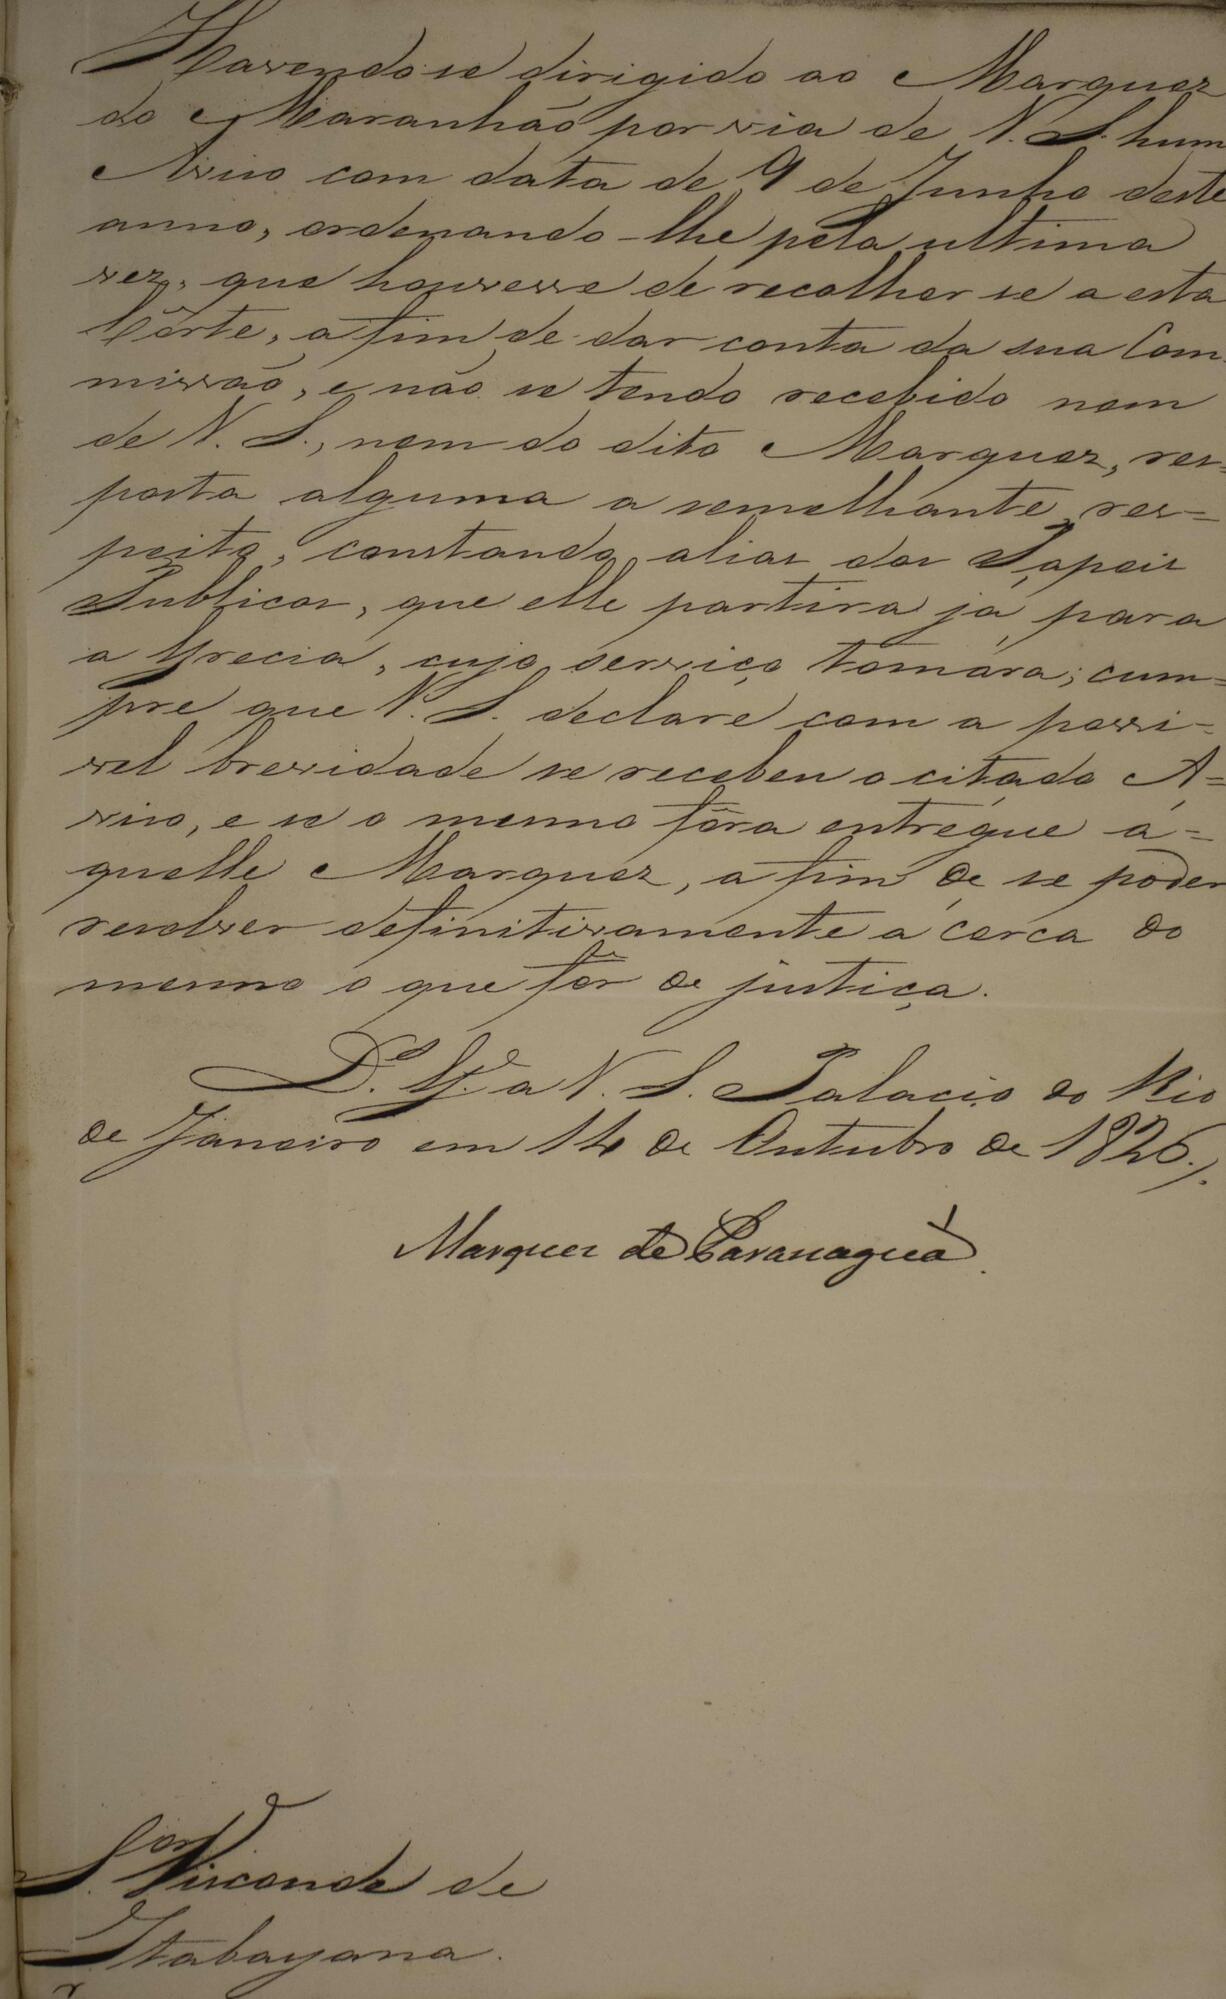 Havendo se dirigido ao Marquez
do Maranhão por via de V. S. hum
Aviso com data de 9 de Junho deste
anno, ordenando-lhe pela ultima
vez, que houvesse de recolher se a esta
Côrte, a fim de dar conta da sua Com-
missão, e não se tendo recebido nem
de V. S., nem do dito Marquez, res-
posta alguma a semelhante res=
peito, constando alias dos Papeis
Publicos, que elle partira já para
a Grecia, cujo serviço tomára; cum=
pre que V. S. declare com a possi=
vel brevidade se recebeu o citado A=
viso, e se o mesmo fôra entregue á=
quelle Marquez, a fim de se poder
resolver definitivamente á cerca do
mesmo o que fôr de justiça.
D.s G.e a V. S. Palacio do Rio
de Janeiro em 14 de Outubro de 1826./.
Marquez de Paranaguá.
S.or Visconde de
Itabayana.